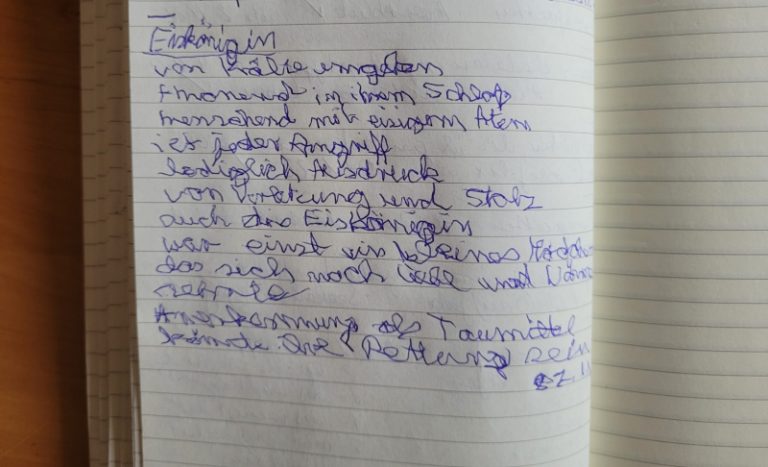 Eiskönigin
von Kälte umgeben
thronend in ihrem Schloß
mit eisigem Atem
ist jeder Angriff
lediglich Ausdruck
von Verletzung und Stolz
auch die Eiskönigin
war einst ein kleines
das sich nach Liebe und
sehnte
Anerkennung als Taumittel
könnte ihre Rettung sein